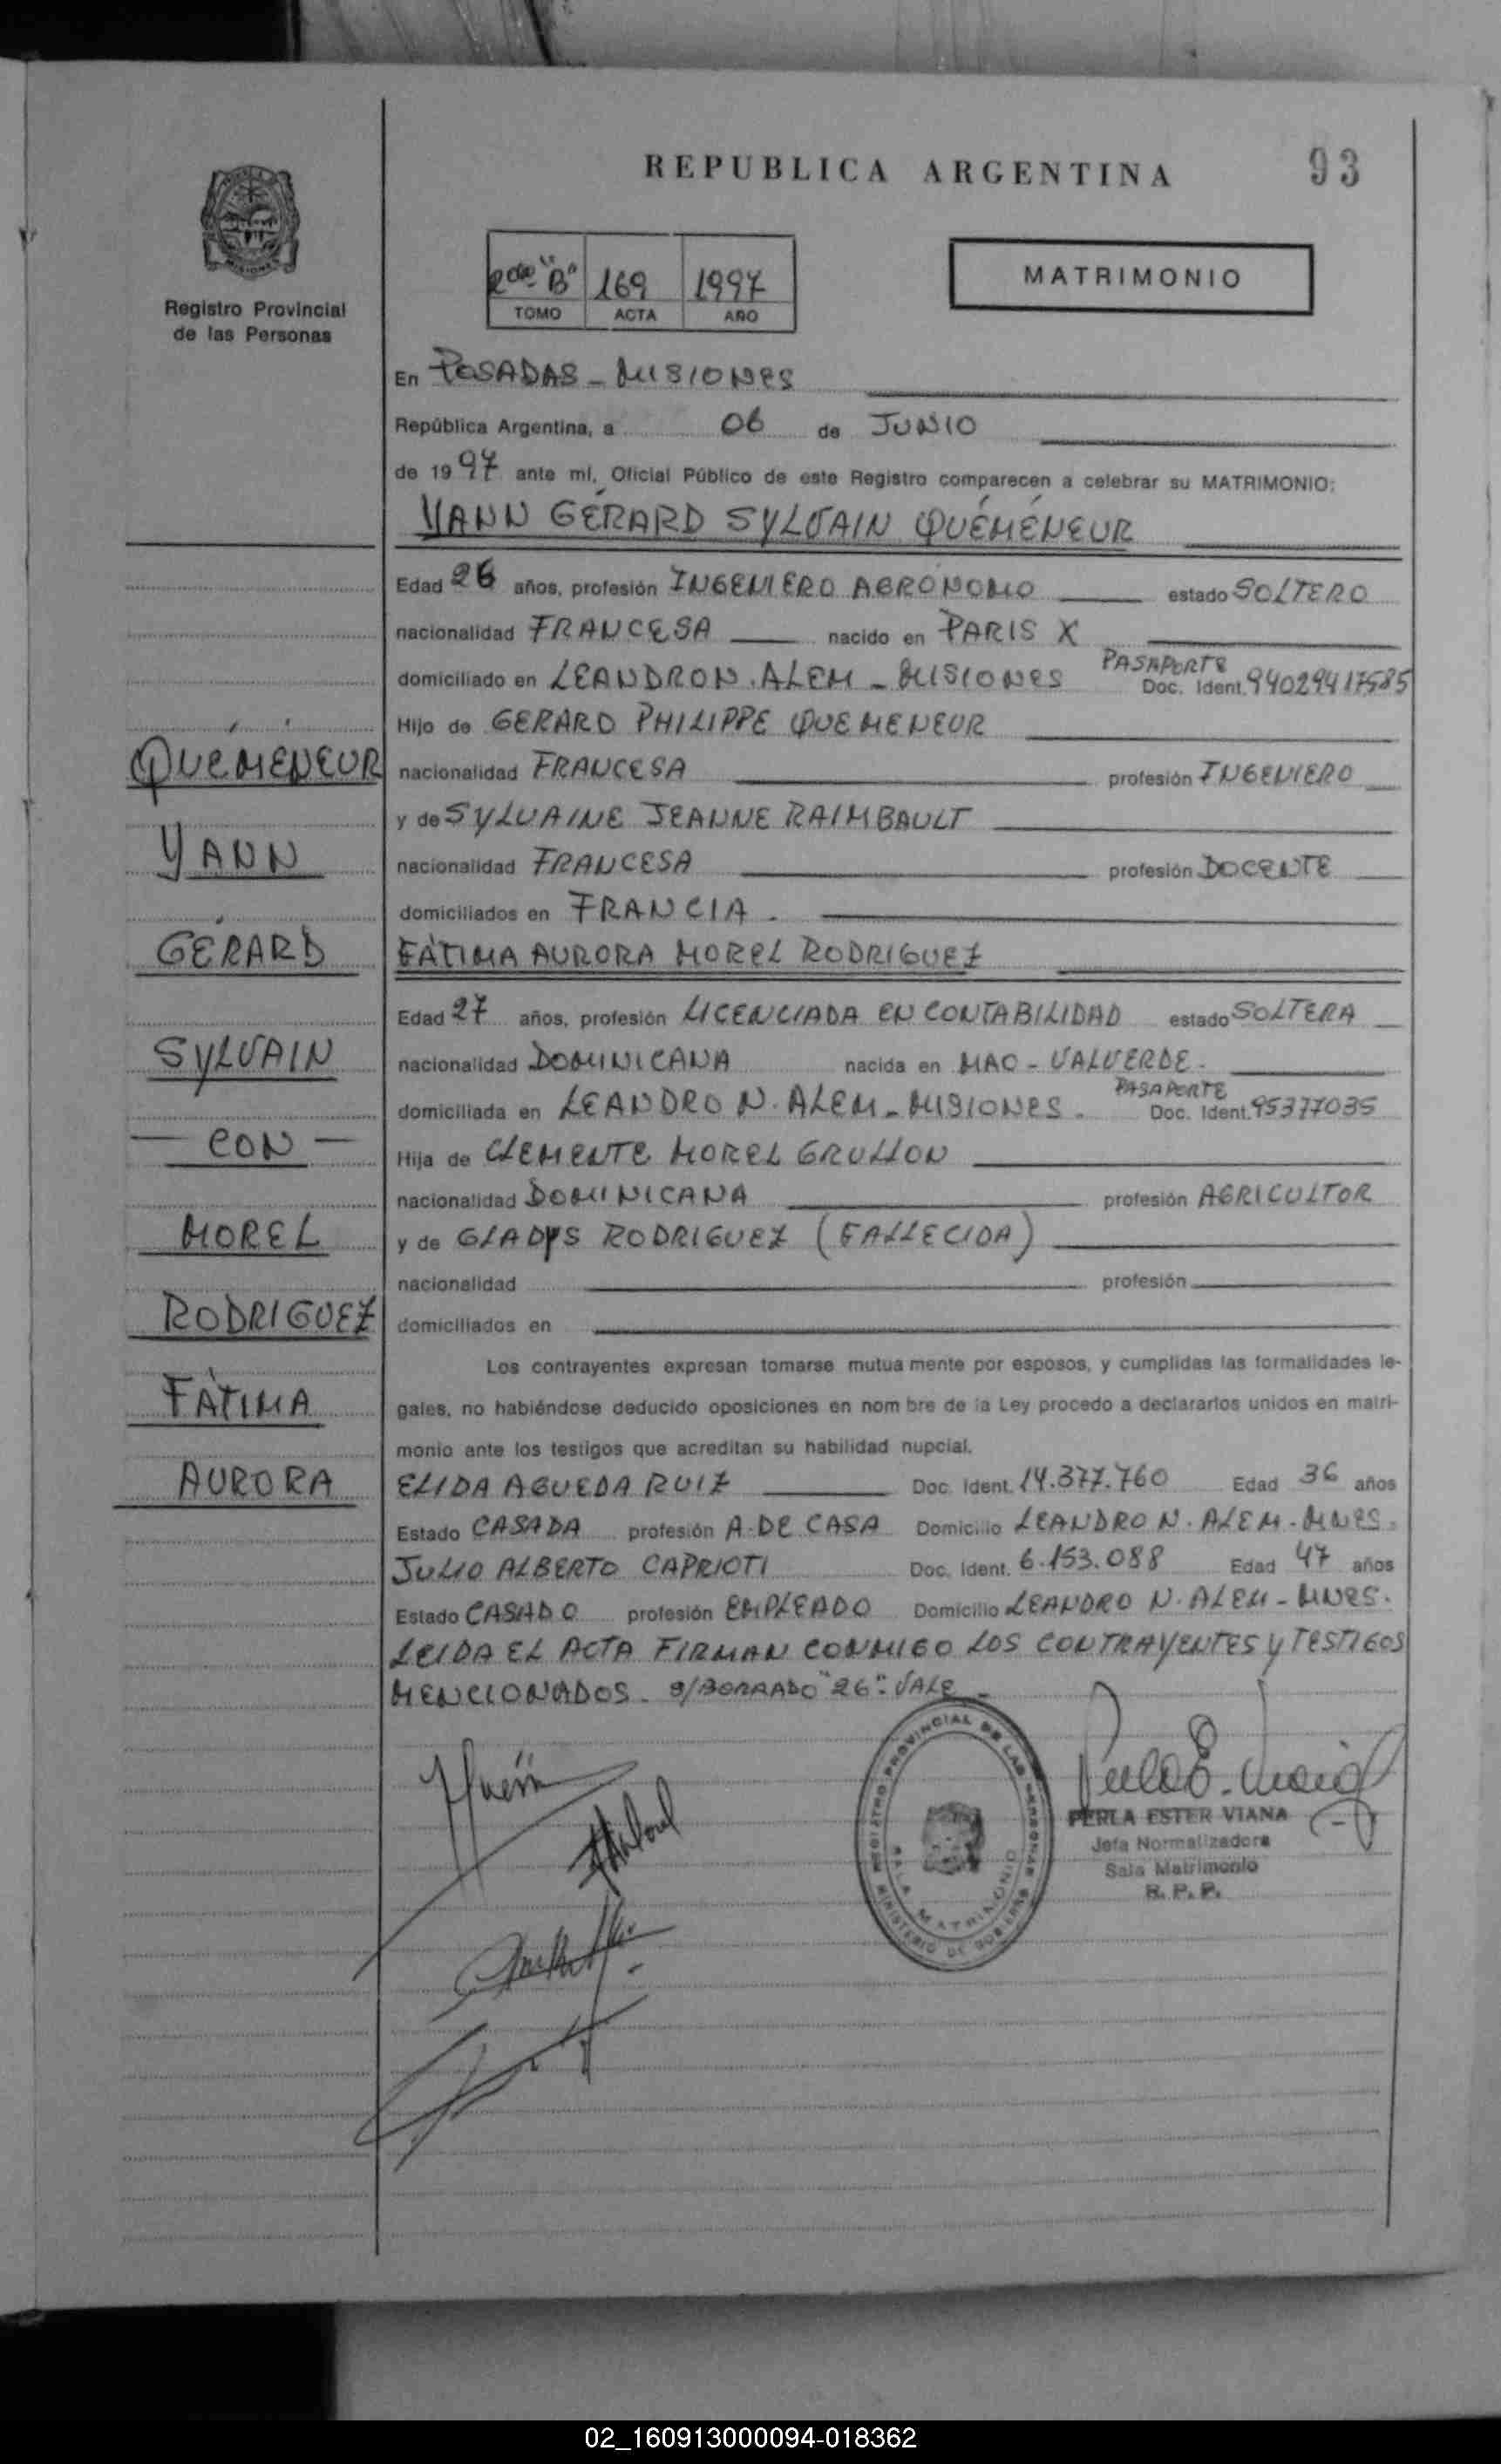 REPUBLICA ARGENTINA
93
MISIONES
Registro Provincial
de las Personas
2do "B" 169 1997
TOMO ACTA AÑO
MATRIMONIO
En POSADAS - MISIONES
República Argentina, a 06 de JUNIO
de 1997 ante mi, Oficial Público de este Registro comparecen a celebrar su MATRIMONIO:
YANN GÉRARD SYLVAIN QUÉMÉNEUR
Edad 26 años, profesión INGENIERO AGRONOMO estado SOLTERO
nacionalidad FRANCESA nacido en PARIS X
domiciliado en LEANDRO N. ALEM - MISIONES PASAPORTE Doc. Ident. 94029417585
Hijo de GERARD PHILIPPE QUEMENEUR
nacionalidad FRANCESA profesión INGENIERO
y de SYLVAINE JEANNE RAIMBAULT
nacionalidad FRANCESA profesión DOCENTE
domiciliados en FRANCIA.
FÁTIMA AURORA MOREL RODRIGUEZ
Edad 27 años, profesión LICENCIADA EN CONTABILIDAD estado SOLTERA
nacionalidad DOMINICANA nacida en MAO - VALVERDE.
domiciliada en LEANDRO N. ALEM - MISIONES. PASAPORTE Doc. Ident. 95377035
Hija de CLEMENTE MOREL GRULLON
nacionalidad DOMINICANA profesión AGRICULTOR
y de GLADYS RODRIGUEZ (FALLECIDA)
nacionalidad profesión
domiciliados en
Los contrayentes expresan tomarse mutua mente por esposos, y cumplidas las formalidades le-
gales, no habiéndose deducido oposiciones en nom bre de la Ley procedo a declararlos unidos en matri-
monio ante los testigos que acreditan su habilidad nupcial.
ELIDA AGUEDA RUIZ Doc. Ident. 14.377.760 Edad 36 años
Estado CASADA profesión A. DE CASA Domicilio LEANDRO N. ALEM - MNES.
JULIO ALBERTO CAPRIOTI Doc. Ident. 6.153.088 Edad 47 años
Estado CASADO profesión EMPLEADO Domicilio LEANDRO N. ALEM - MNES.
LEIDA EL ACTA FIRMAN CONMIGO LOS CONTRAYENTES Y TESTIGOS
MENCIONADOS. S/BORRADO "26": VALE -
QUÉMÉNEUR
YANN
GÉRARD
SYLVAIN
- CON -
MOREL
RODRIGUEZ
FÁTIMA
AURORA
REGISTRO PROVINCIAL DE LAS PERSONAS
MINISTERIO DE GOBIERNO
SALA MATRIMONIO
PERLA ESTER VIANA
Jefa Normalizadora
Sala Matrimonio
R. P. P.
02_160913000094-018362